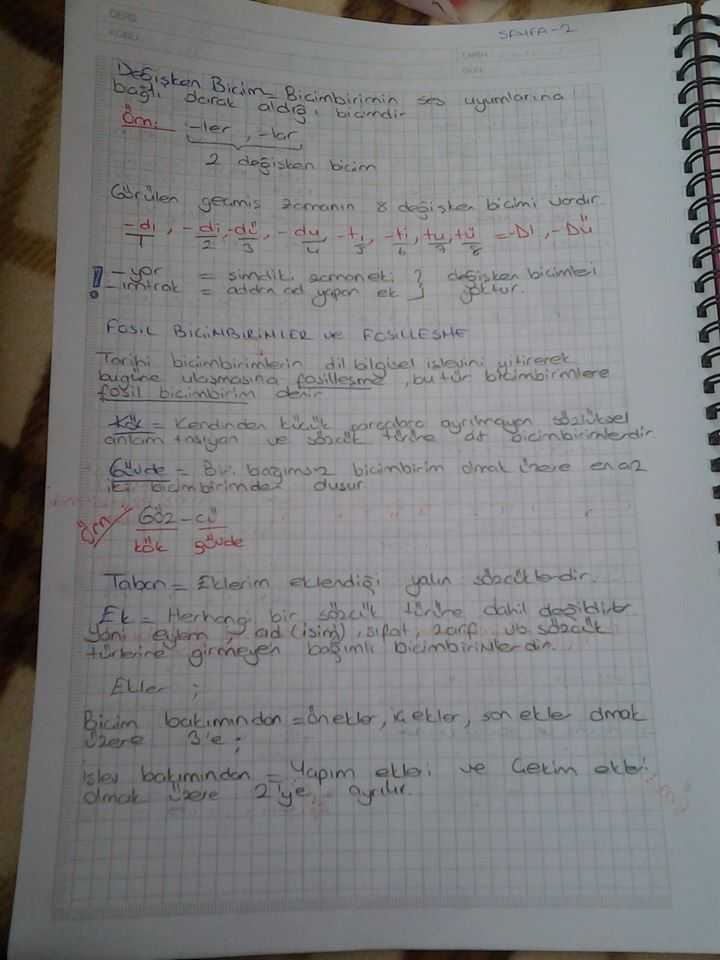 DERS
KONU
SAYFA-2
TARİH
Değişken Biçim = Biçimbirimin ses uyumlarına
bağlı olarak aldığı biçimdir
Örn: -ler, -lar
2 değişken biçim
Görülen geçmiş zamanın 8 değişken biçimi vardır
-dı, -di, -dü, -du, -tı, -ti, tu, tü = -DI, -DÜ
1 2 3 4 5 6 7 8
! -yor = şimdiki zaman eki } değişken biçimleri
-ımtrak = addan ad yapan ek } yoktur.
FOSİL BİÇİMBİRİMLER ve FOSİLLEŞME
Tarihi biçimbirimlerin dil bilgisel işlevini yitirerek
bugüne ulaşmasına fosilleşme, bu tür biçimbirmlere
fosil biçimbirim denir
Kök = Kendinden küçük parçalara ayrılmayan sözlüksel
anlam taşıyan ve sözcük türüne ait biçimbirimlerdir
Gövde = Bir bağımsız biçimbirim olmak üzere en az
iki biçimbirimden
Örn/ Göz - cü
kök gövde
Taban = Eklerim eklendiği yalın sözcüklerdir.
Ek = Herhangi bir sözcük türüne dahil değildirler
yani eylem, ad (isim), sıfat, zarf vb sözcük
türlerine girmeyen bağımlı biçimbirimlerdir.
Ekler ;
Biçim bakımından = önekler, iç ekler, son ekler olmak
üzere 3'e ;
işlev bakımından = Yapım ekleri ve Çekim ekleri
olmak üzere 2'ye ayrılır.